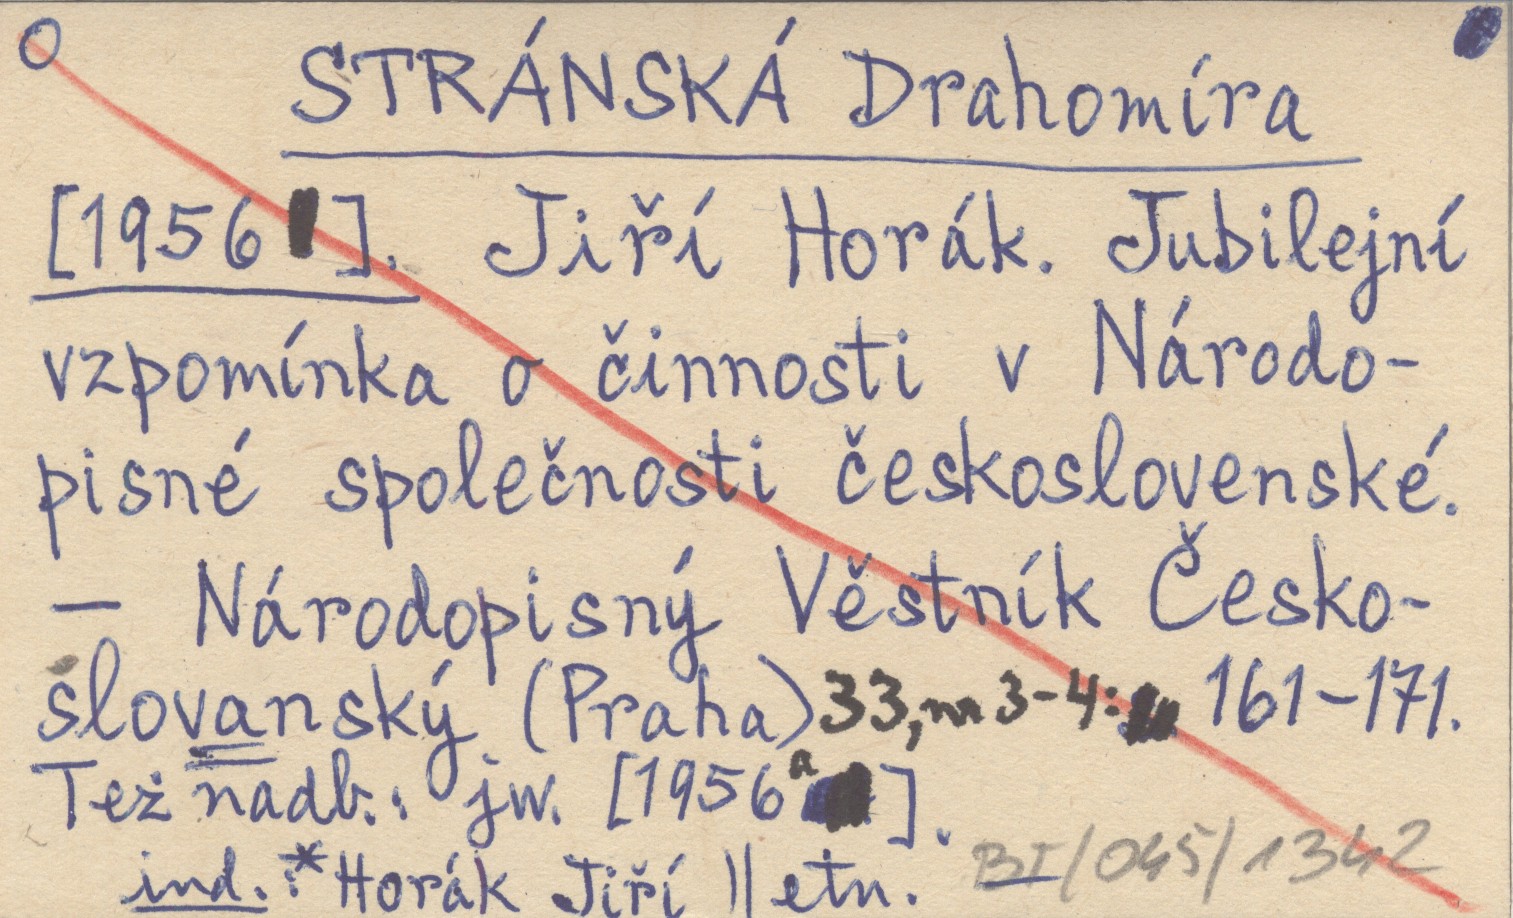 STRÁNSKÁ Drahomíra
[1956 ]. Jiří Horák. Jubilejní
vzpomínka o činnosti v Národo-
pisné společnosti československé.
— Národopisný Věstník Česko-
slovanský (Praha) 33, nr 3-4: 161-171.
Też nadb.: jw. [1956a ].
ind.: *Horák Jiří || etn. BI/045/1342